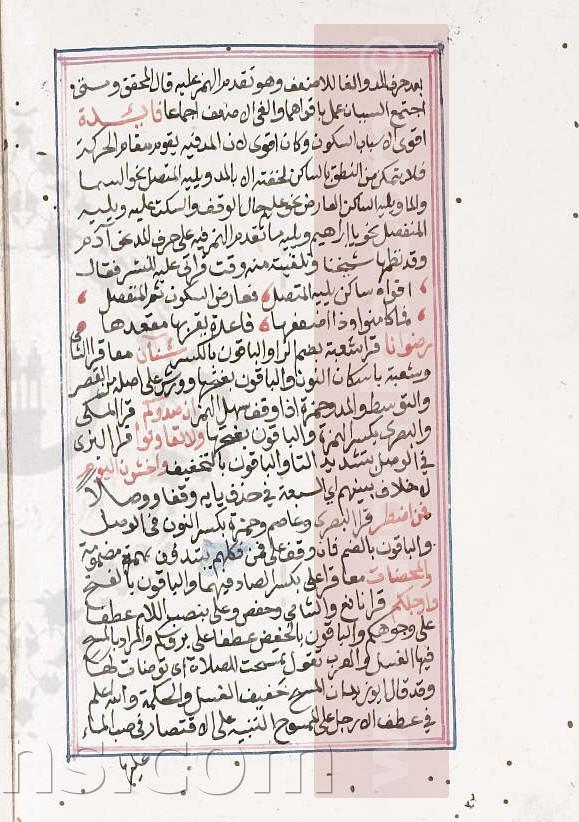 بعد حرف المد والغالل لا ضعف وهو تقدم الهمز عليه قال المحقق ومتى
اجتمع السببان عمل باقواهما والغى الاضعف اجماعا فايدة
اقوى الاسباب السكون وكان اقوى لان المد فيه يقوم مقام الحركة
فلا يتمكن من النطق بالساكن لخفته الا بالمد ويليه المتصل نحو السما
والما ويليه الساكن العارض نحو على حال الوقف والسكت عليه ويليه
المنفصل نحو يا ابراهيم ويليه ما تقدم الهمز فيه على حرف المد نحو آدم
وقد نظمها شيخنا وتلقيته منه وقت قراتي عليه النشر فقال
، اقواه ساكن يليه المتصل ، فعارض السكون ثم المنفصل ،
، فما كآمنوا وذا اضعفها ، قاعدة يقربها مقعدها ،
رضوانا قرا شعبة بضم الرا والباقون بالكسر شنآن معا قرا الشامى
وشعبة باسكان النون والباقون بفتحها وورش على اصله من القصر
والتوسط والمد وحمزة اذا وقف سهل الهمز ان صدوكم قرا المكى
والبصرى بكسر الهمزة والباقون بفتحها ولا تعاونوا قرا البزى
فى الوصل بتشديد التا والباقون بالتخفيف واخشون اليوم
لا خلاف بينهم اى السبعة في حذف يايه وقفا ووصلا
فمن اضطر قرا البصرى وعاصم وحمزة بكسر النون فى الوصل
والباقون بالضم فان وقف على فمن فكلهم يبتدئون بهمزة مضمومة
والمحصنات معا قرا على بكسر الصاد فيهما والباقون بالفتح
وارجلكم قرا نافع والشامى وحفص وعلى بنصب اللام عطفا
على وجوهكم والباقون بالخفض عطفا على بروسكم والمراد بالمسح
فيها الغسل والعرب تقول تمسحت للصلاة اى توضات لها
وقد قال ابو زيد ان المسح خفيف الغسل والحكمة والله اعلم
فى عطف الارجل على الممسوح التنبيه على الاقتصار فى صب الماء
عليها
ns.com